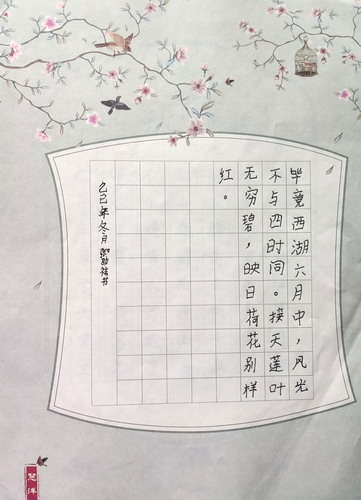 毕竟西湖六月中，风光
不与四时同。接天莲叶
无穷碧，映日荷花别样
红。
乙巳年冬月
书